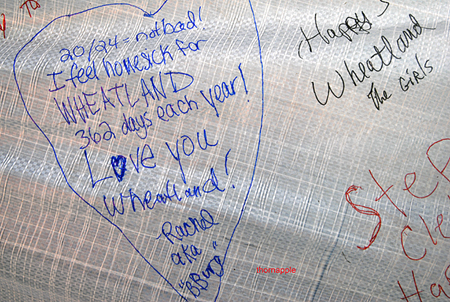 20/24 - not bad!
I feel homesick for
WHEATLAND
362 days each year!
Love you
Wheatland!
Rachel
aka
Happy
Wheatland
The Girls
Step
Cle
Ha
thornapple